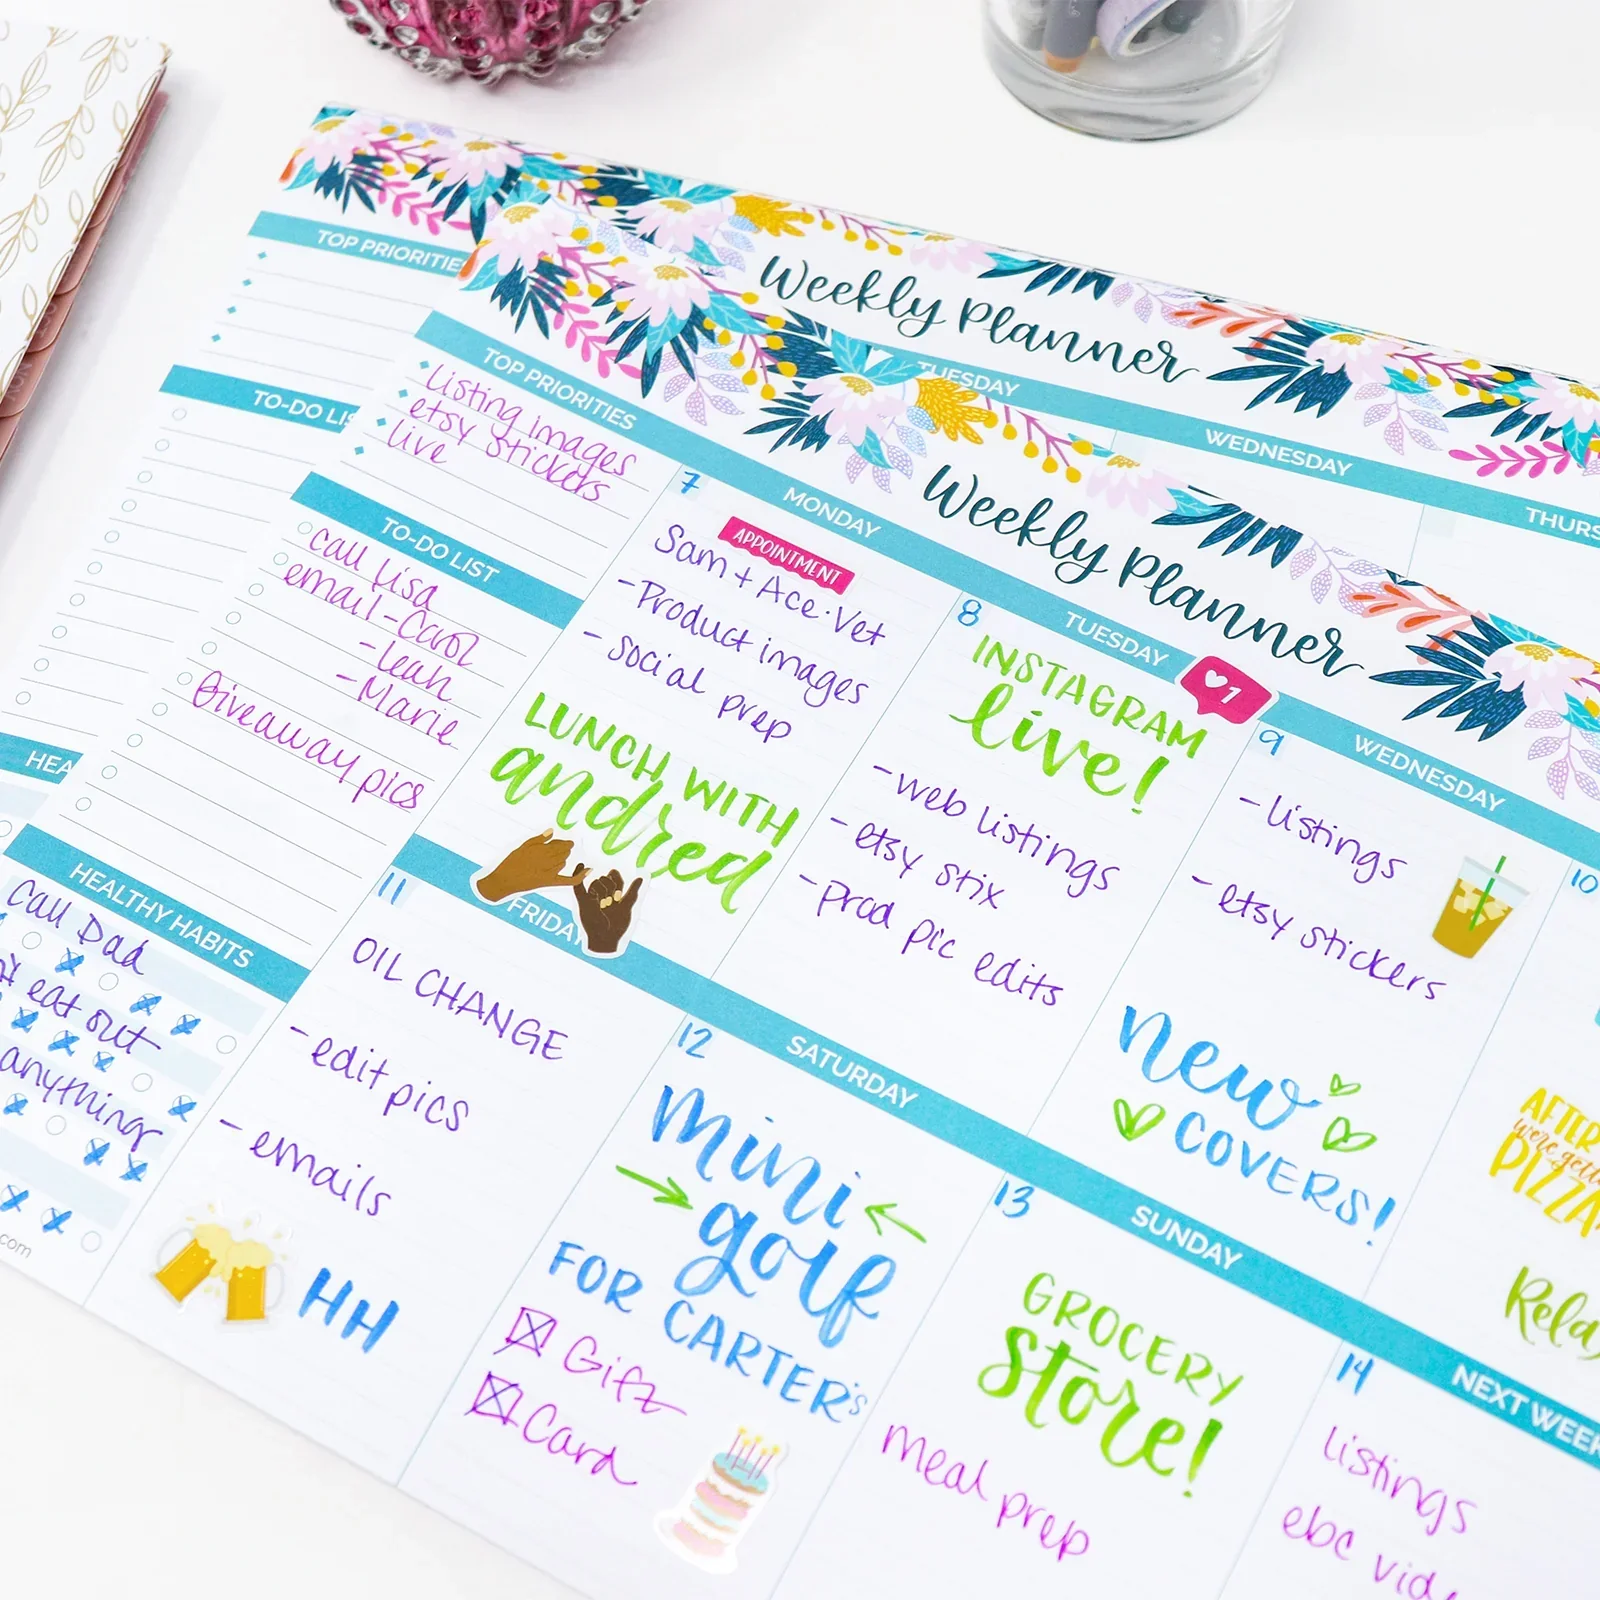 Weekly Planner
TOP PRIORITIE
TUESDAY
WEDNESDAY
THURS
TO-DO LIS
HEA
Weekly Planner
TOP PRIORITIES
Listing images
etsy stickers
live
TO-DO LIST
call Lisa
email-Carol
-leah
-Marie
Giveaway pics
HEALTHY HABITS
Call Dad
eat out
anything
.com
MONDAY
7
APPOINTMENT
Sam + Ace·Vet
-Product images
- social prep
LUNCH WITH
andrea
TUESDAY
8
1
INSTAGRAM
live!
-web listings
-etsy stix
-prod pic edits
WEDNESDAY
9
-listings
-etsy stickers
new
COVERS!
10
AFTER
we're getti
PIZZA
Rela
FRIDAY
11
OIL CHANGE
-edit pics
-emails
HH
SATURDAY
12
mini
golf
FOR CARTER'S
Gift
Card
SUNDAY
13
GROCERY
Store!
meal prep
NEXT WEEK
14
listings
ebc vid